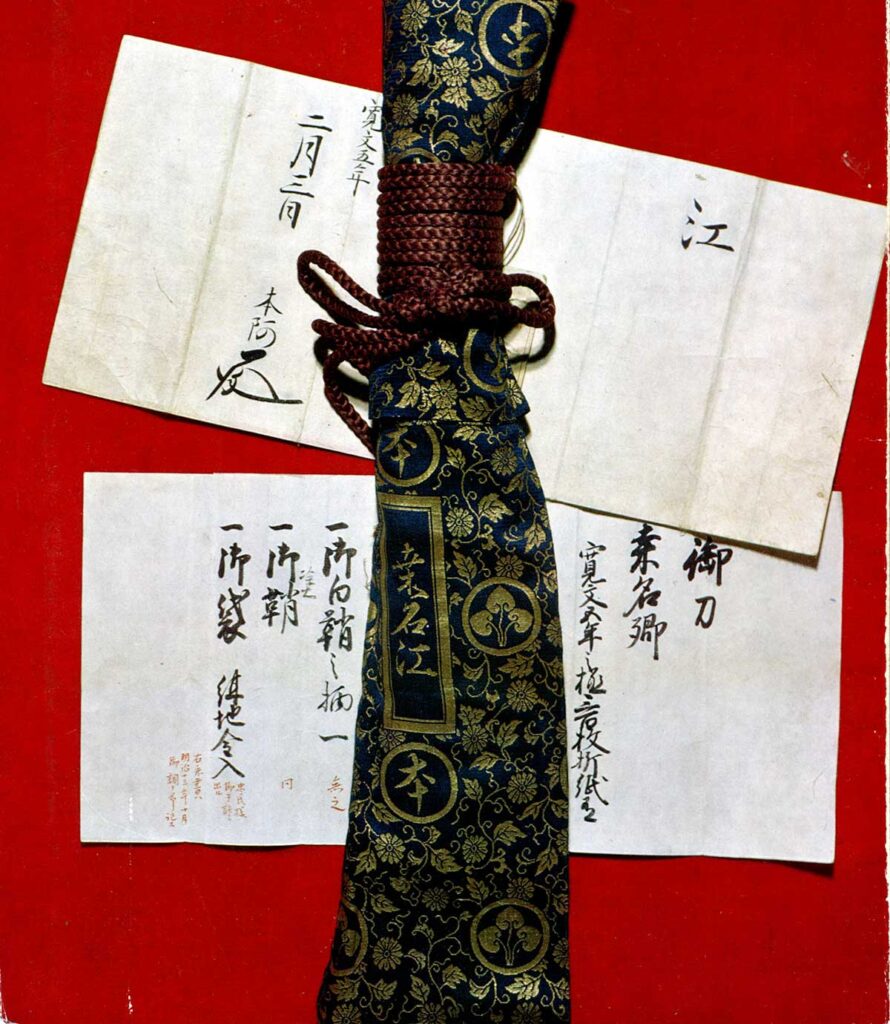 江
寛文五年
二月三日
本阿
御刀
桑名郷
寛文五年之極三百枚折紙有
一御白鞘之柄一
無之
一御塗鞘
同
一御袋 紺地金入
本
桑名江
本
本